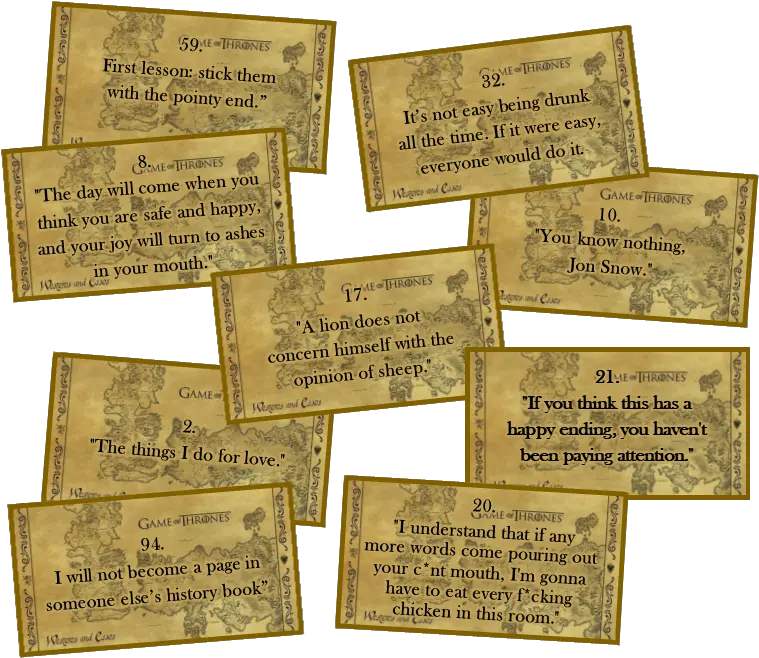 GAME OF THRONES
59.
First lesson: stick them
with the pointy end.”
GAME OF THRONES
32.
It’s not easy being drunk
all the time. If it were easy,
everyone would do it.
Westeros and Essos
GAME OF THRONES
8.
"The day will come when you
think you are safe and happy,
and your joy will turn to ashes
in your mouth."
Westeros and Essos
GAME OF THRONES
10.
"You know nothing,
Jon Snow."
GAME OF THRONES
17.
"A lion does not
concern himself with the
opinion of sheep."
Westeros and Essos
GAME OF THRONES
21.
"If you think this has a
happy ending, you haven't
been paying attention."
GAME
2.
"The things I do for love."
Westeros and
GAME OF THRONES
94.
I will not become a page in
someone else’s history book”
Westeros and Essos
GAME OF THRONES
20.
"I understand that if any
more words come pouring out
your c*nt mouth, I'm gonna
have to eat every f*cking
chicken in this room."